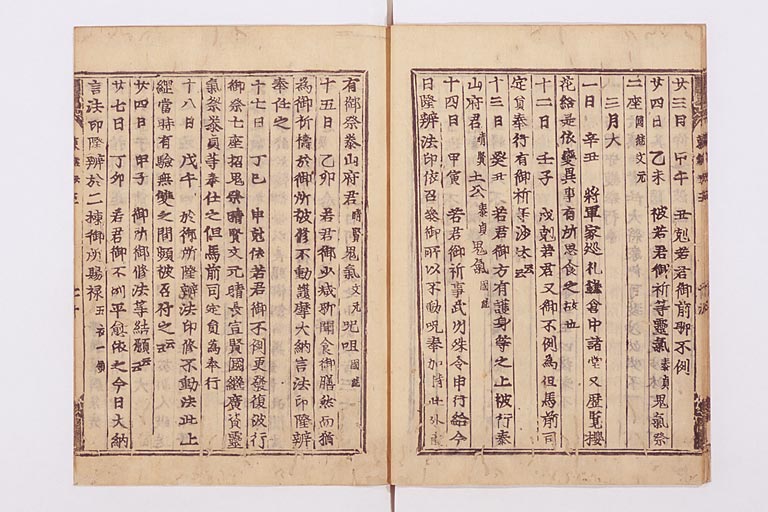 廿三日 甲午 丑剋若君御前聊不例
廿四日 乙未 被若君御祈等靈氣泰貞鬼氣祭
二座國継文元
三月大
一日 辛丑 將軍家巡礼鎌倉中諸堂又歴覧櫻
花給是依變異事有所思食之故也
十二日 壬子 戌剋若君又御不例為但馬前司
定員奉行有御祈等沙汰云云
十三日 癸丑 若君御方有護身等之上被行泰
山府君晴賢土公泰貞鬼氣國継
十四日 甲寅 若君御祈事武州殊令申行給今
日隆辨法印依召參御所以不動呪奉加持此外
有御祭泰山府君晴賢鬼氣文元呪咀國継
十五日 乙卯 若君御少減聊聞食御膳然而猶
為御祈禱於御所被修不動護摩大納言法印隆辨
奉仕之
十七日 丁巳 申剋依若君御不例更發復被行
御祭七座招鬼祭晴賢文元晴長宣賢國継廣資靈
氣祭泰貞等奉仕之但馬前司定員為奉行
十八日 戊午 於御所隆辨法印修不動法此上
經當時有驗無雙之間頻被召符之云云
廿四日 甲子 御所御修法等結願云云
廿七日 丁卯 若君御不例平愈依之今日大納
言法印隆辨於二棟御所賜祿五衣一領